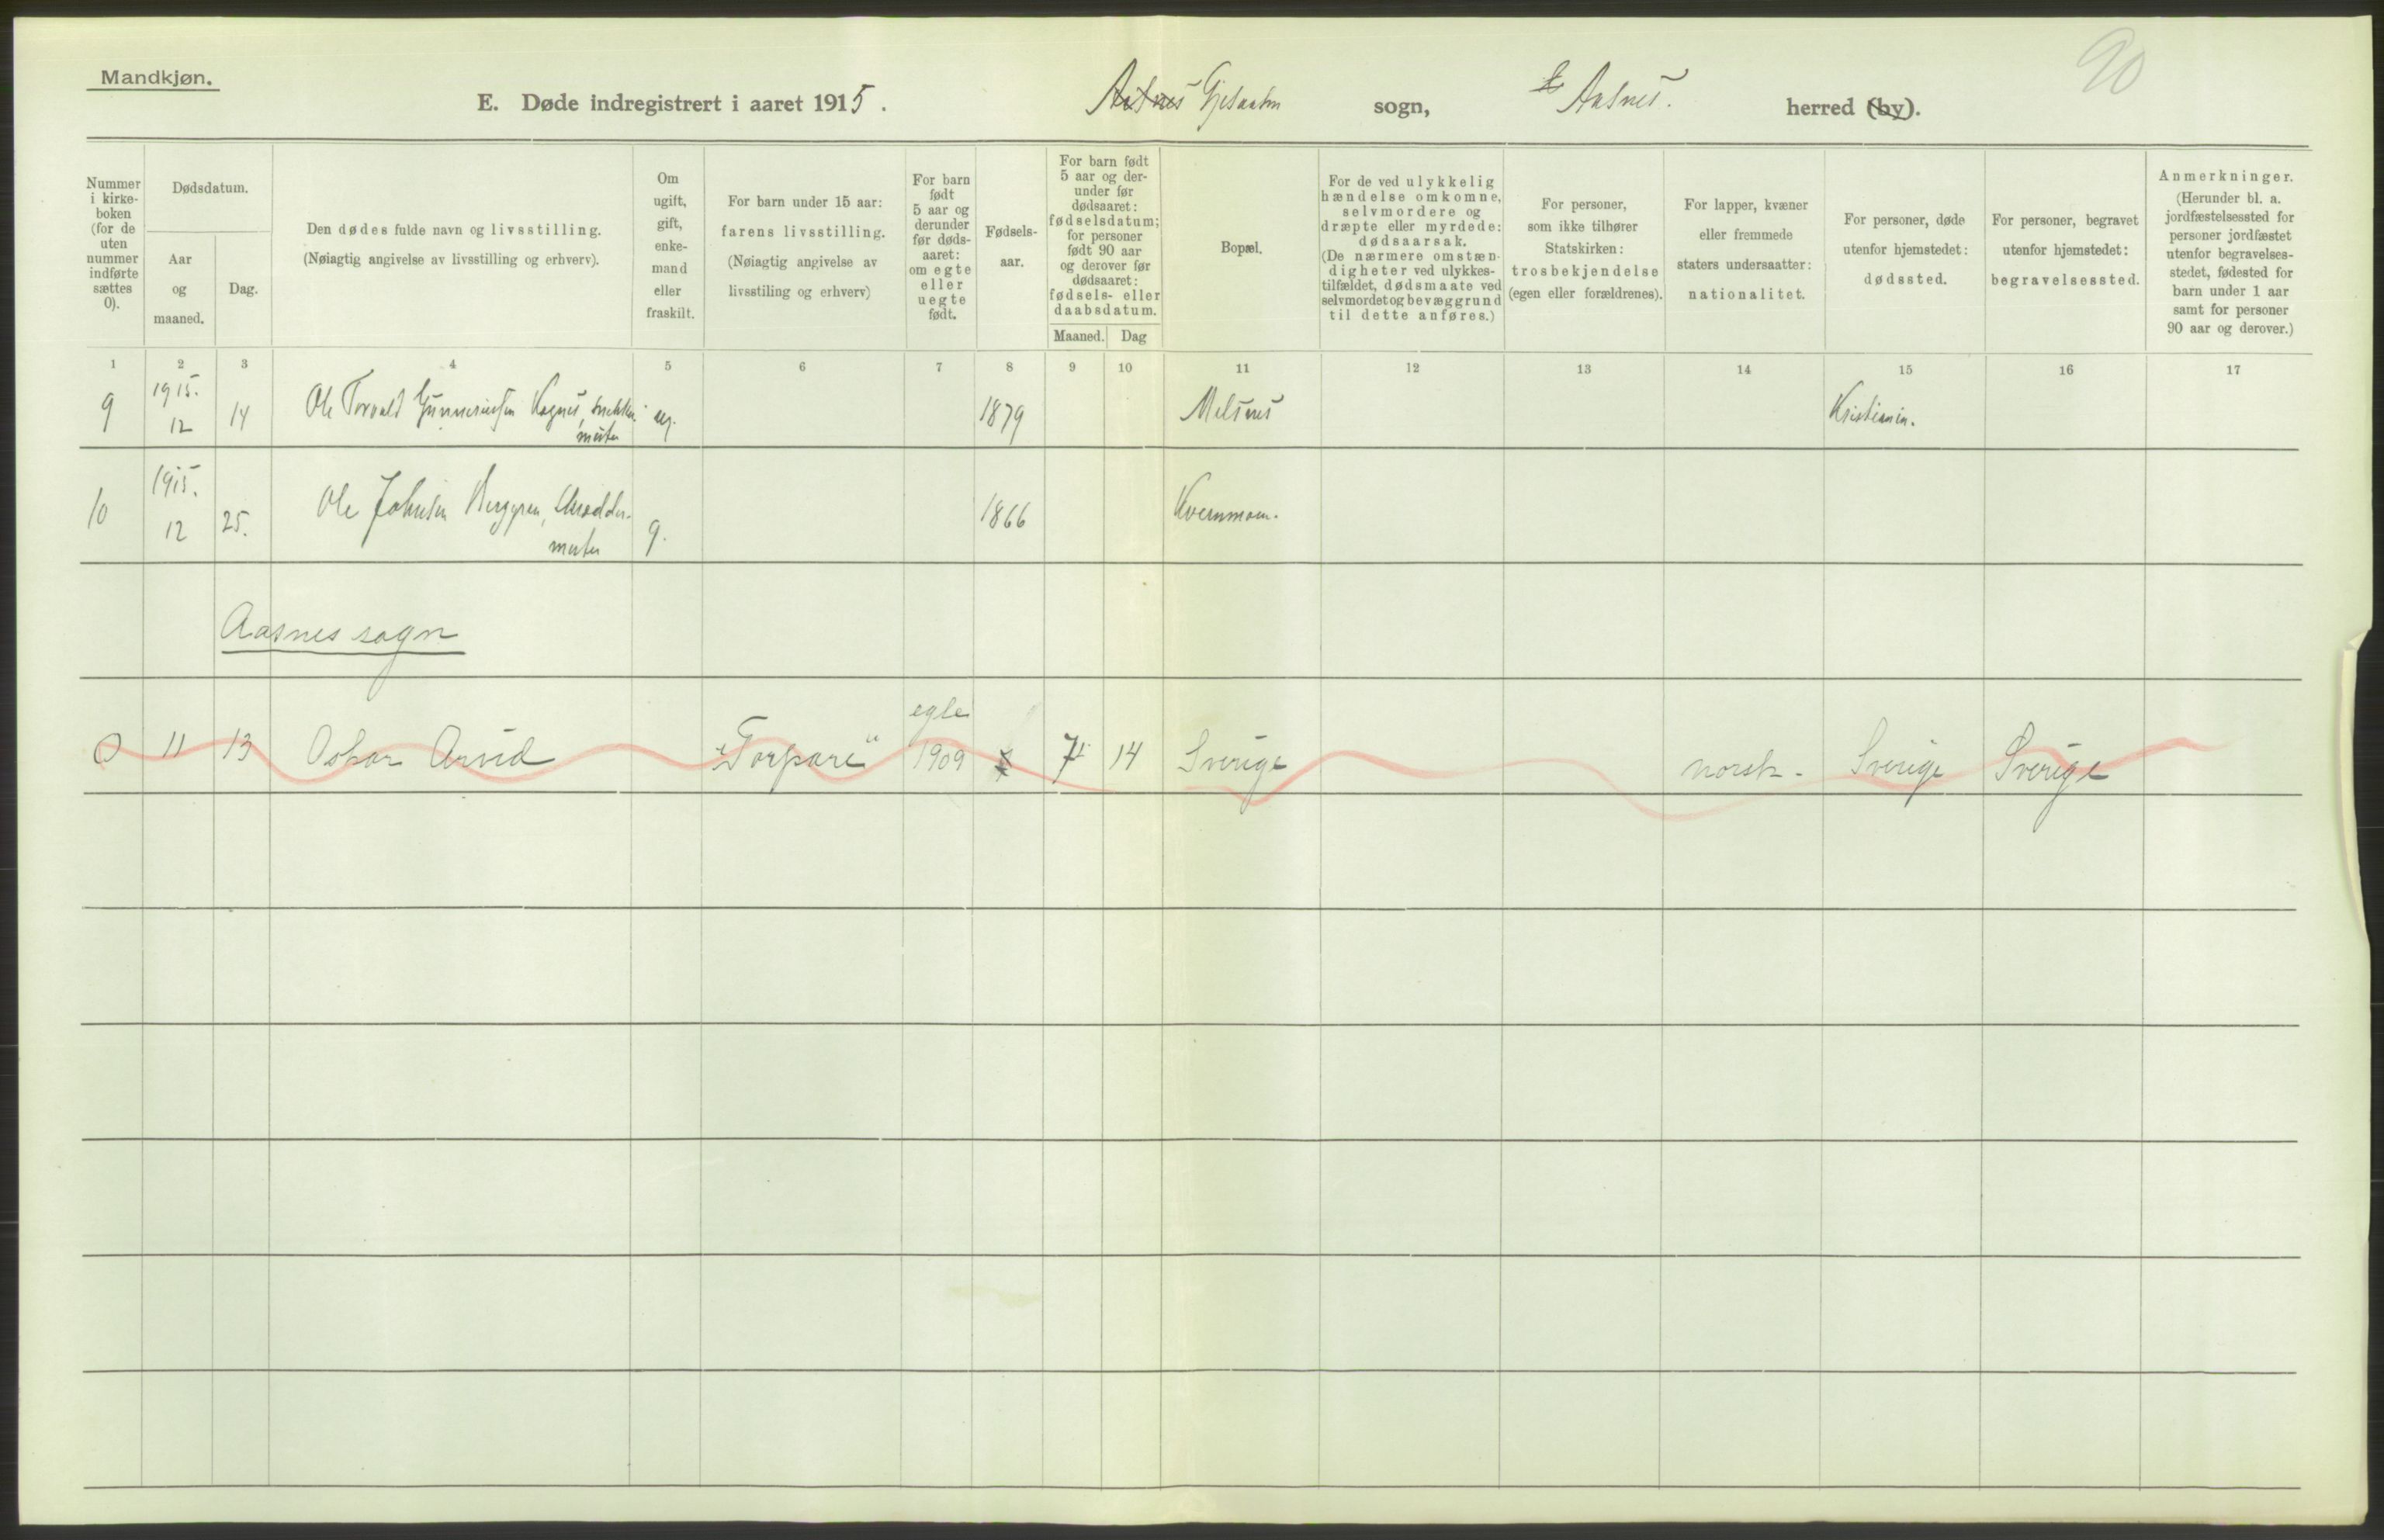 Mandkjøn.
90
E. Døde indregistrert i aaret 1915. Aasnes Gjesaasen sogn, Aasnes. herred (by).
Nummer i kirke-boken (for de uten nummer indførte sættes 0).
Dødsdatum.
Aar og maaned.
Dag.
Den dødes fulde navn og livsstilling.
(Nøiagtig angivelse av livsstilling og erhverv).
Om ugift, gift, enke-mand eller fraskilt.
For barn under 15 aar:
farens livsstilling.
(Nøiagtig angivelse av
livsstiling og erhverv)
For barn født 5 aar og derunder før døds-aaret: om egte eller uegte født.
Fødsels-aar.
For barn født 5 aar og der-under før dødsaaret: fødselsdatum; for personer født 90 aar og derover før dødsaaret: fødsels- eller daabsdatum.
Maaned. Dag
Bopæl.
For de ved ulykkelig hændelse omkomne, selvmordere og dræpte eller myrdede: dødsaarsak.
(De nærmere omstæn-digheter ved ulykkes-tilfældet, dødsmaate ved selvmordet og bevæggrund til dette anføres.)
For personer, som ikke tilhører Statskirken: trosbekjendelse (egen eller forældrenes).
For lapper, kvæner eller fremmede staters undersaatter: nationalitet.
For personer, døde utenfor hjemstedet: dødssted.
For personer, begravet utenfor hjemstedet: begravelsessted.
Anmerkninger.
(Herunder bl. a. jordfæstelsessted for personer jordfæstet utenfor begravelses-stedet, fødested for barn under 1 aar samt for personer 90 aar og derover.)
1 2 3 4 5 6 7 8 9 10 11 12 13 14 15 16 17
9 1915. 12 14 Ole Torvald Gunneriusen Kognes, snekker mester ug. 1879 Melsnes Kristiania.
10 1915. 12 25. Ole Johnsen Berggren, Skrædder-mester g. 1866 Kvernmoen.
Aasnes sogn
0 11 13 Oskar Arvid "Torpare" egte 1909 7 14 Sverige norsk - Sverige Sverige